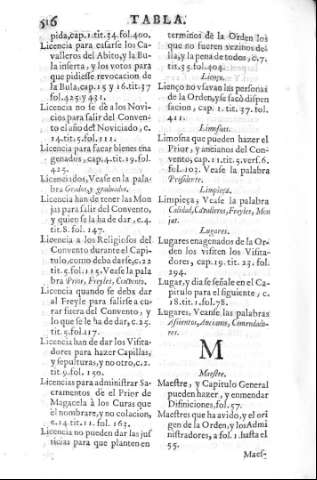 516
TABLA.
pida, cap. 1. tit. 34. fol. 400.
Licencia para casarse los Ca-
valleros del Abito, y la Bu-
la inserta, y los votos para
que pidiesse revocacion de
la Bula, cap. 15 y 16. tit. 37
fol. 425. y 431.
Licencia no se dè a los Novi-
cios para salir del Conven-
to el año del Noviciado, c.
14. tit. 5. fol. 111.
Licencia para sacar bienes ena
genados, cap. 4. tit. 19. fol.
425.
Licenciados, Vease en la pala-
bra Grados, y graduados.
Licencia han de tener las Mon
jas para salir del Convento,
y quien se la ha de dar, c. 4.
tit. 8. fol. 147.
Licencia a los Religiosos del
Convento durante el Capi-
tulo, como deba darse, c. 22
tit. 5. fol. 115. Vease la pala
bra Prior, Freyles,
Licencia quando se deba dar
al Freyle para salirse a cu-
rar fuera del Convento, y
lo que se le ha de dar, c. 25.
tit. 5. fol. 117.
Licencia han de dar los Visita-
dores para hazer Capillas,
y sepulturas, y no otro, c. 2.
tit. 9. fol. 150.
Licencias para administrar Sa-
cramentos dè el Prior de
Magacela à los Curas que
èl nombrare, y no colacion,
c. 14. tit. 11. fol. 163.
Licencia no pueden dar las jus
ticias para que planten en
terminos de la Orden los
que no fueren vezinos de-
lla, y la pena de todos, c. 7.
tit. 35. fol. 404.
Lienço.
Lienço no vsavan las personas
de la Orden, y se sacò dispen
sacion, cap. 1. tit. 37. fol.
411.
Limosnas.
Limosna que pueden hazer el
Prior, y ancianos del Con-
vento, cap. 11. tit. 5. vers. 6.
fol. 103. Vease la palabra
Presidente.
Limpieça.
Limpieça, Vease la palabra
Calidad, Cavalleros, Freyles, Mon
jas.
Lugares.
Lugares enagenados de la Or-
den los visiten los Visita-
dores, cap. 19. tit. 23. fol.
294.
Lugar, y dia se señale en el Ca-
pitulo para el siguiente, c.
18. tit. 1. fol. 78.
Lugares, Veanse las palabras
Assientos, Ancianos, Comendado-
res.
M
Maestre.
Maestre, y Capitulo General
pueden hazer, y enmendar
Difiniciones, fol. 57.
Maestres que ha avido, y el ori
gen de la Orden, y los Admi
nistradores, a fol. 1. hasta el
55.
Maes-